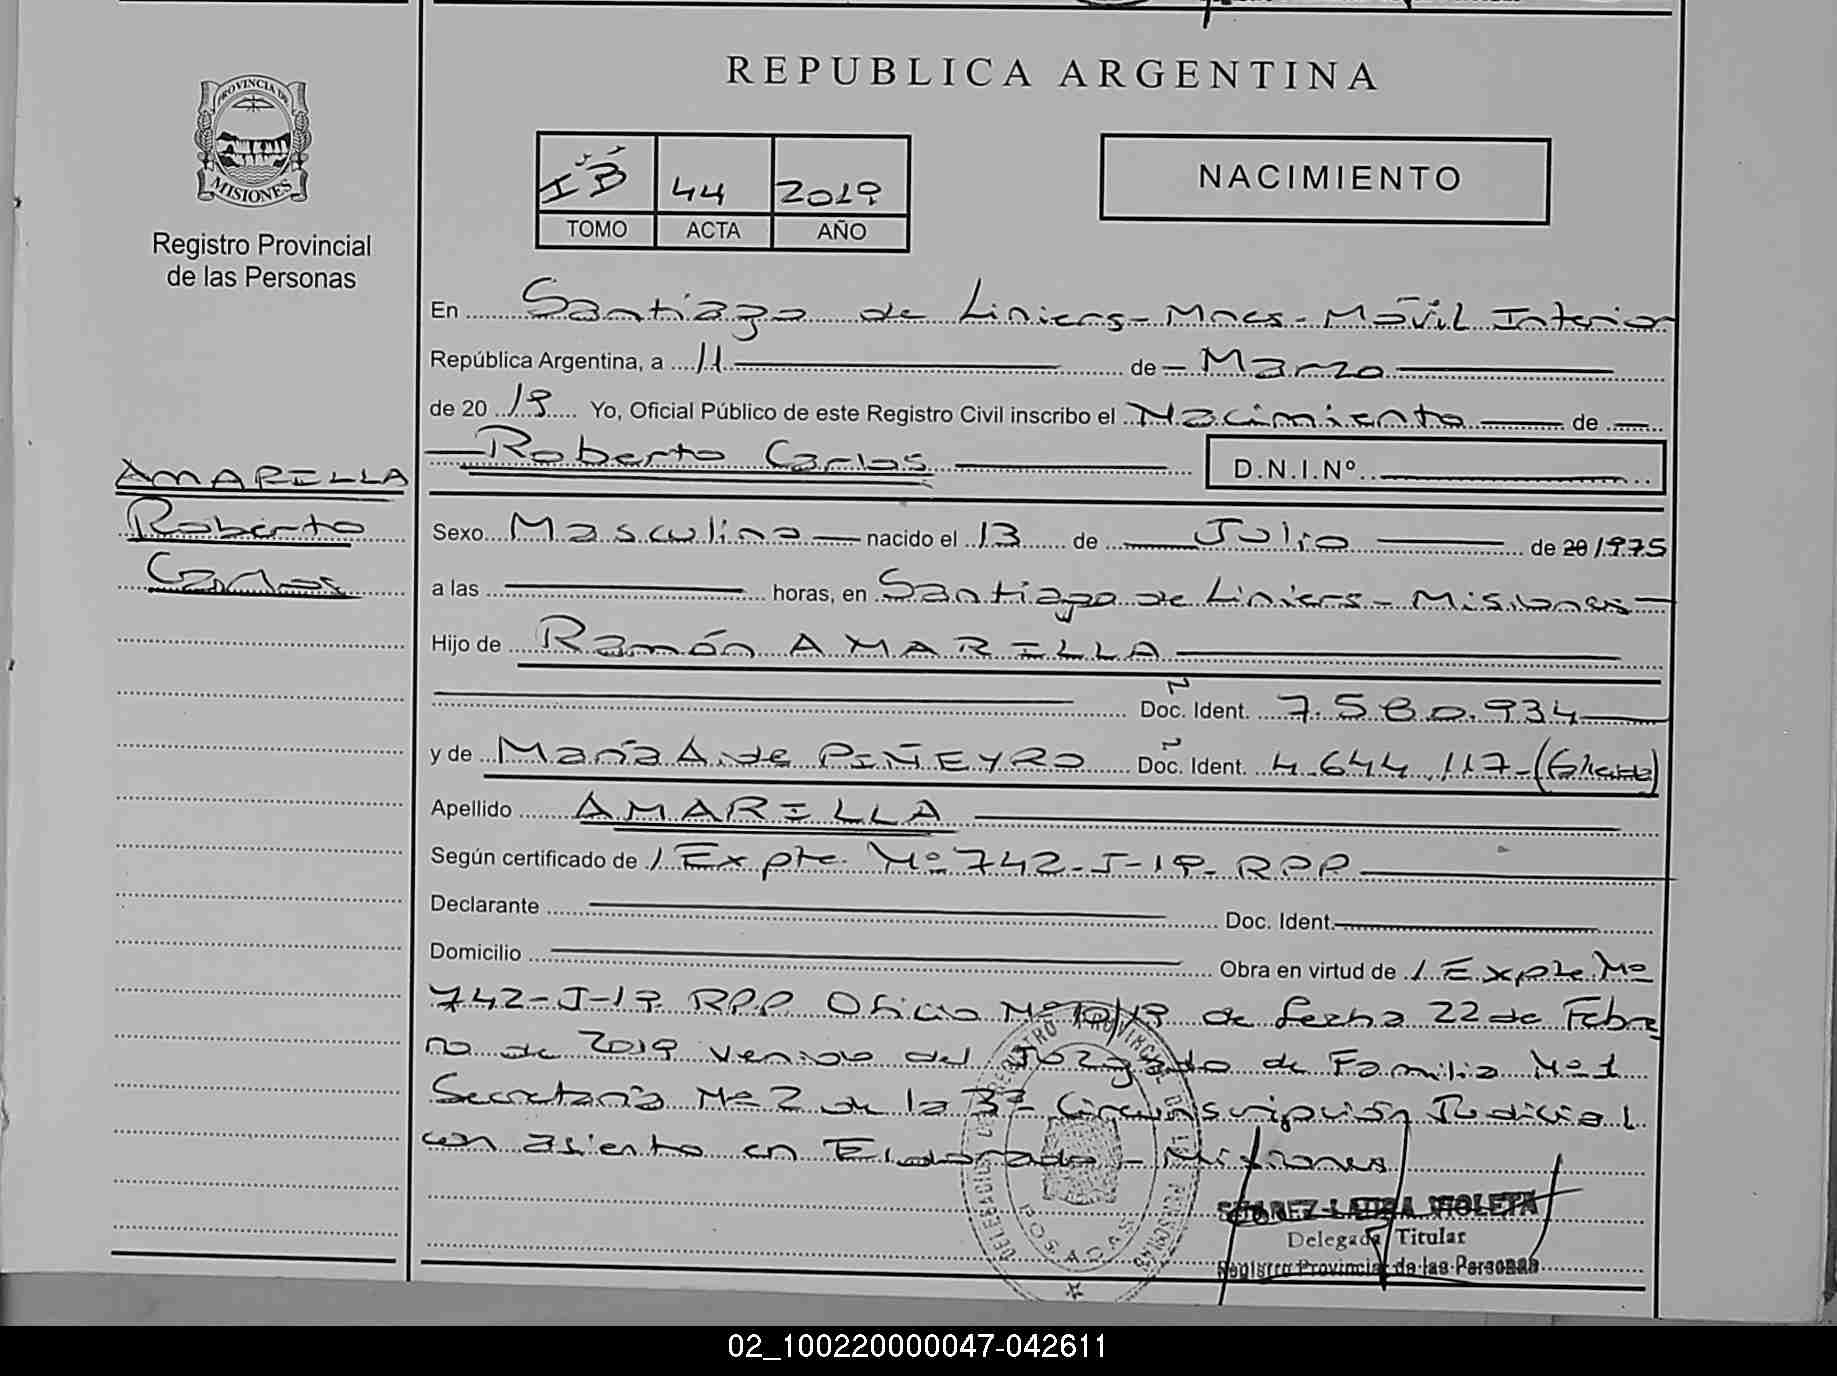 REPUBLICA ARGENTINA
PROVINCIA DE
MISIONES
Registro Provincial
de las Personas
44 2019
TOMO ACTA AÑO
NACIMIENTO
En Santiago de Liniers - Mnes - Móvil Interior
República Argentina, a 11 de Marzo
de 20 19 Yo, Oficial Público de este Registro Civil inscribo el Nacimiento de
Roberto Carlos D.N.I.Nº
AMARILLA
Roberto
Carlos
Sexo Masculino nacido el 13 de Julio de 20 1975
a las horas, en Santiago de Liniers - Misiones
Hijo de Ramón AMARILLA
Doc. Ident. 7.580.934
y de María A. de PIÑEYRO Doc. Ident. 4.644.117-
Apellido AMARILLA
Según certificado de / Expte. Nº 742-J-19- RPP
Declarante Doc. Ident.
Domicilio Obra en virtud de / Expte. Nº
742-J-19 RPP Oficio Nº de fecha 22 de Febre
ro de 2019 venido del Juzgado de Familia Nº 1
Secretaría Nº 2 de la 3ª Circunscripción Judicial
con asiento en Eldorado - Misiones
SUAREZ LAURA VIOLETA
Delegada Titular
Registro Provincial de las Personas
POSADAS
02_100220000047-042611